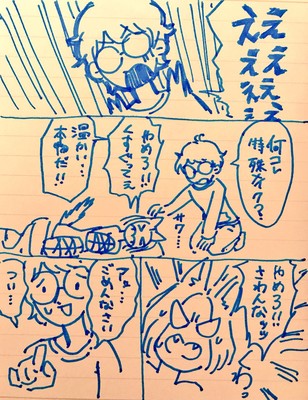 ええええ
ええええ
何コレ
特殊メイク？
サワ…
やめろ!!
くすぐってえ
温かい…
本物だ!!
やめろ!!
さわんなッッ
わっ
アッ…
ごめんなさい
つい…